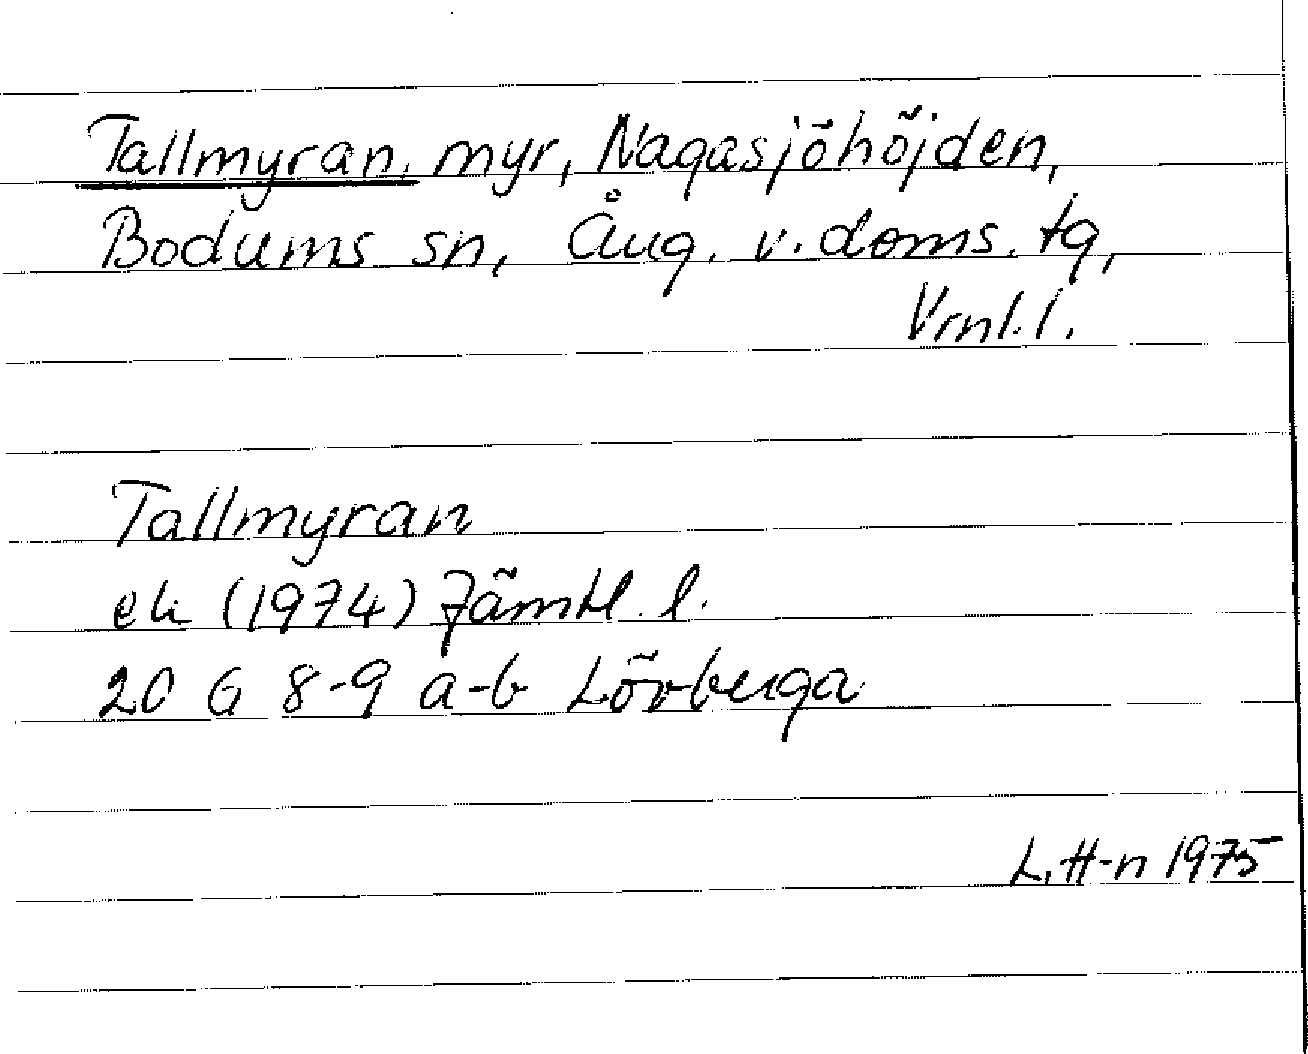 Tallmyran, myr, Nagasjöhöjden,
Bodums sn, Ång. v. doms. tg,
Vrnl. l.
Tallmyran
ek (1974) Jämtl. l.
20 G 8-9 a-b Lövberga
L. H-n 1975